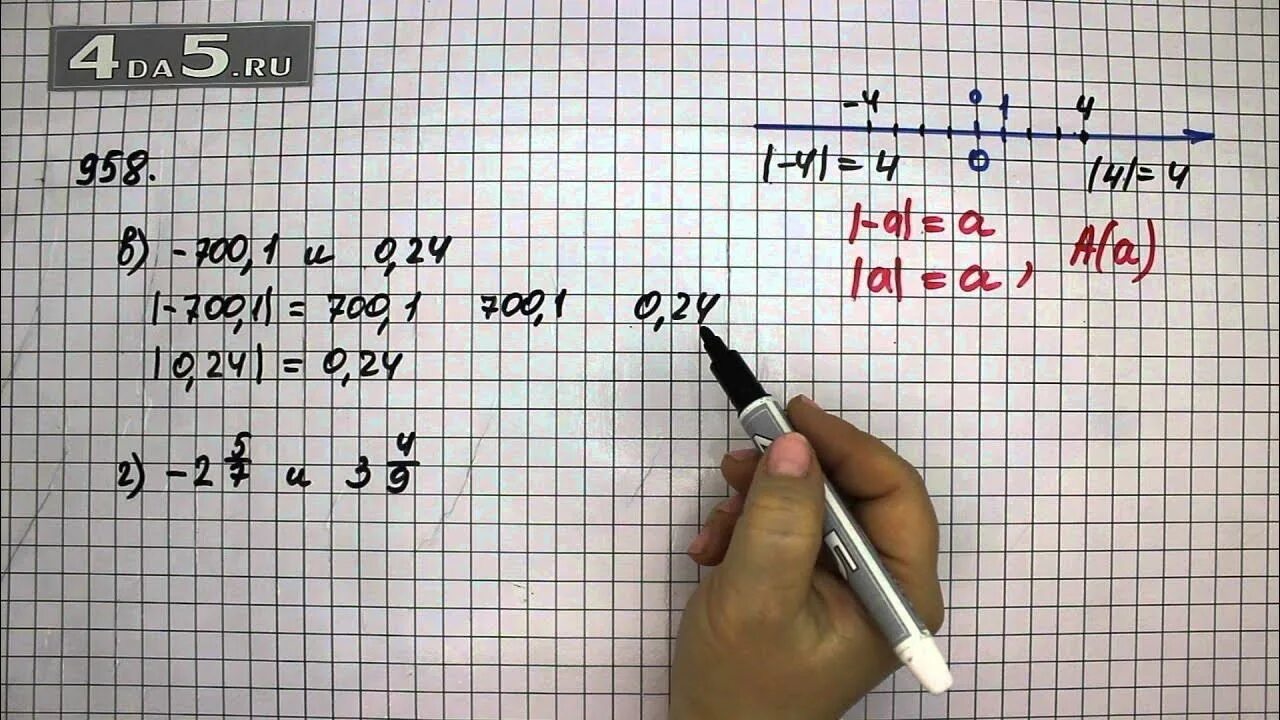 4DA5.RU
958.
в) -700,1 и 0,24
|-700,1| = 700,1 700,1 0,24
|0,24| = 0,24
г) -2 5/7 и 3 4/9
-4 0 1 4
|-4| = 4 0 |4| = 4
|-a| = a
|a| = a, A(a)